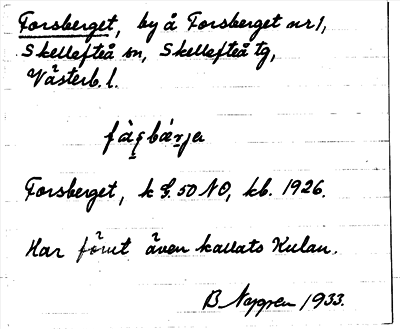 Forsberget, by å Forsberget nr 1,
Skellefteå sn, Skellefteå tg,
Västerb. l.
Forsberget, k S. 50 NO, kb. 1926.
Har förut även kallats Kulan.
B Nygren 1933.